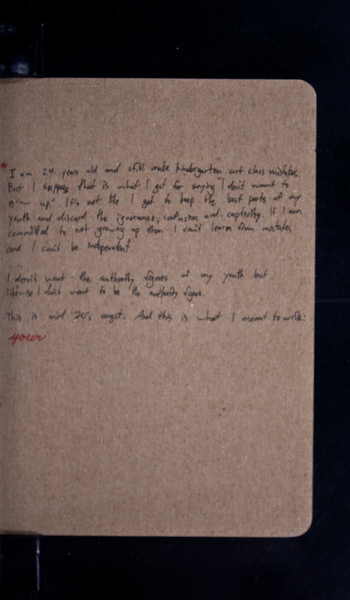 * I am 24 years old and still make kindergarten art class mistakes.
But I suppose that is what I get for saying "I don't want to
grow up." It's not like I get to keep the best parts of my
youth and discard the ignorance, confusion and captivity. If I am
committed to not growing up then I can't learn from mistakes
and I can't be independent.
I don't want the authority figures of my youth but
likewise I don't want to be the authority figure.
This is mid 20's angst. And this is what I meant to write: